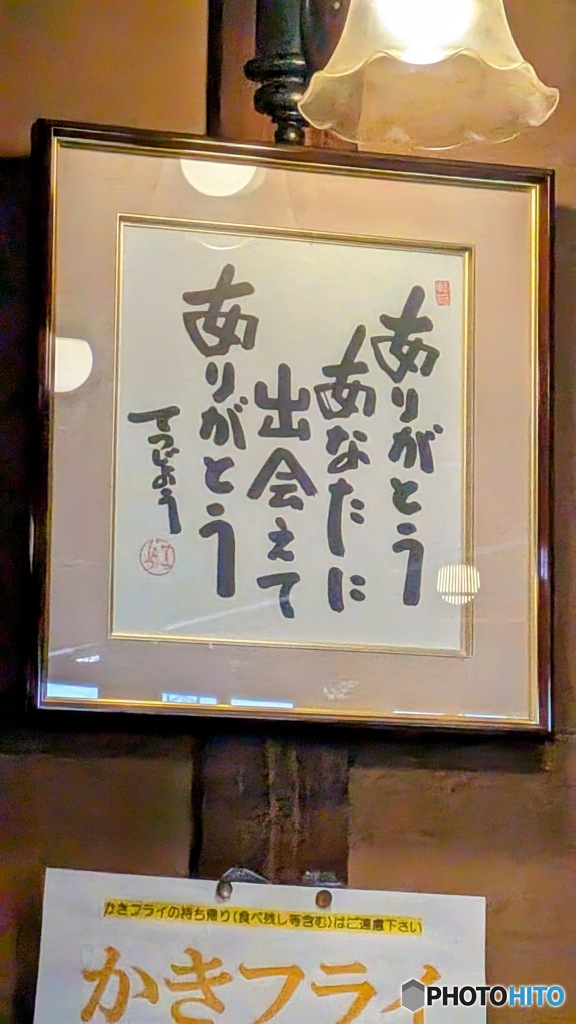 ありがとう
あなたに
出会えて
ありがとう
てつじょう
かきフライの持ち帰り(食べ残し等含む)はご遠慮下さい
かきフライ
PHOTOHITO